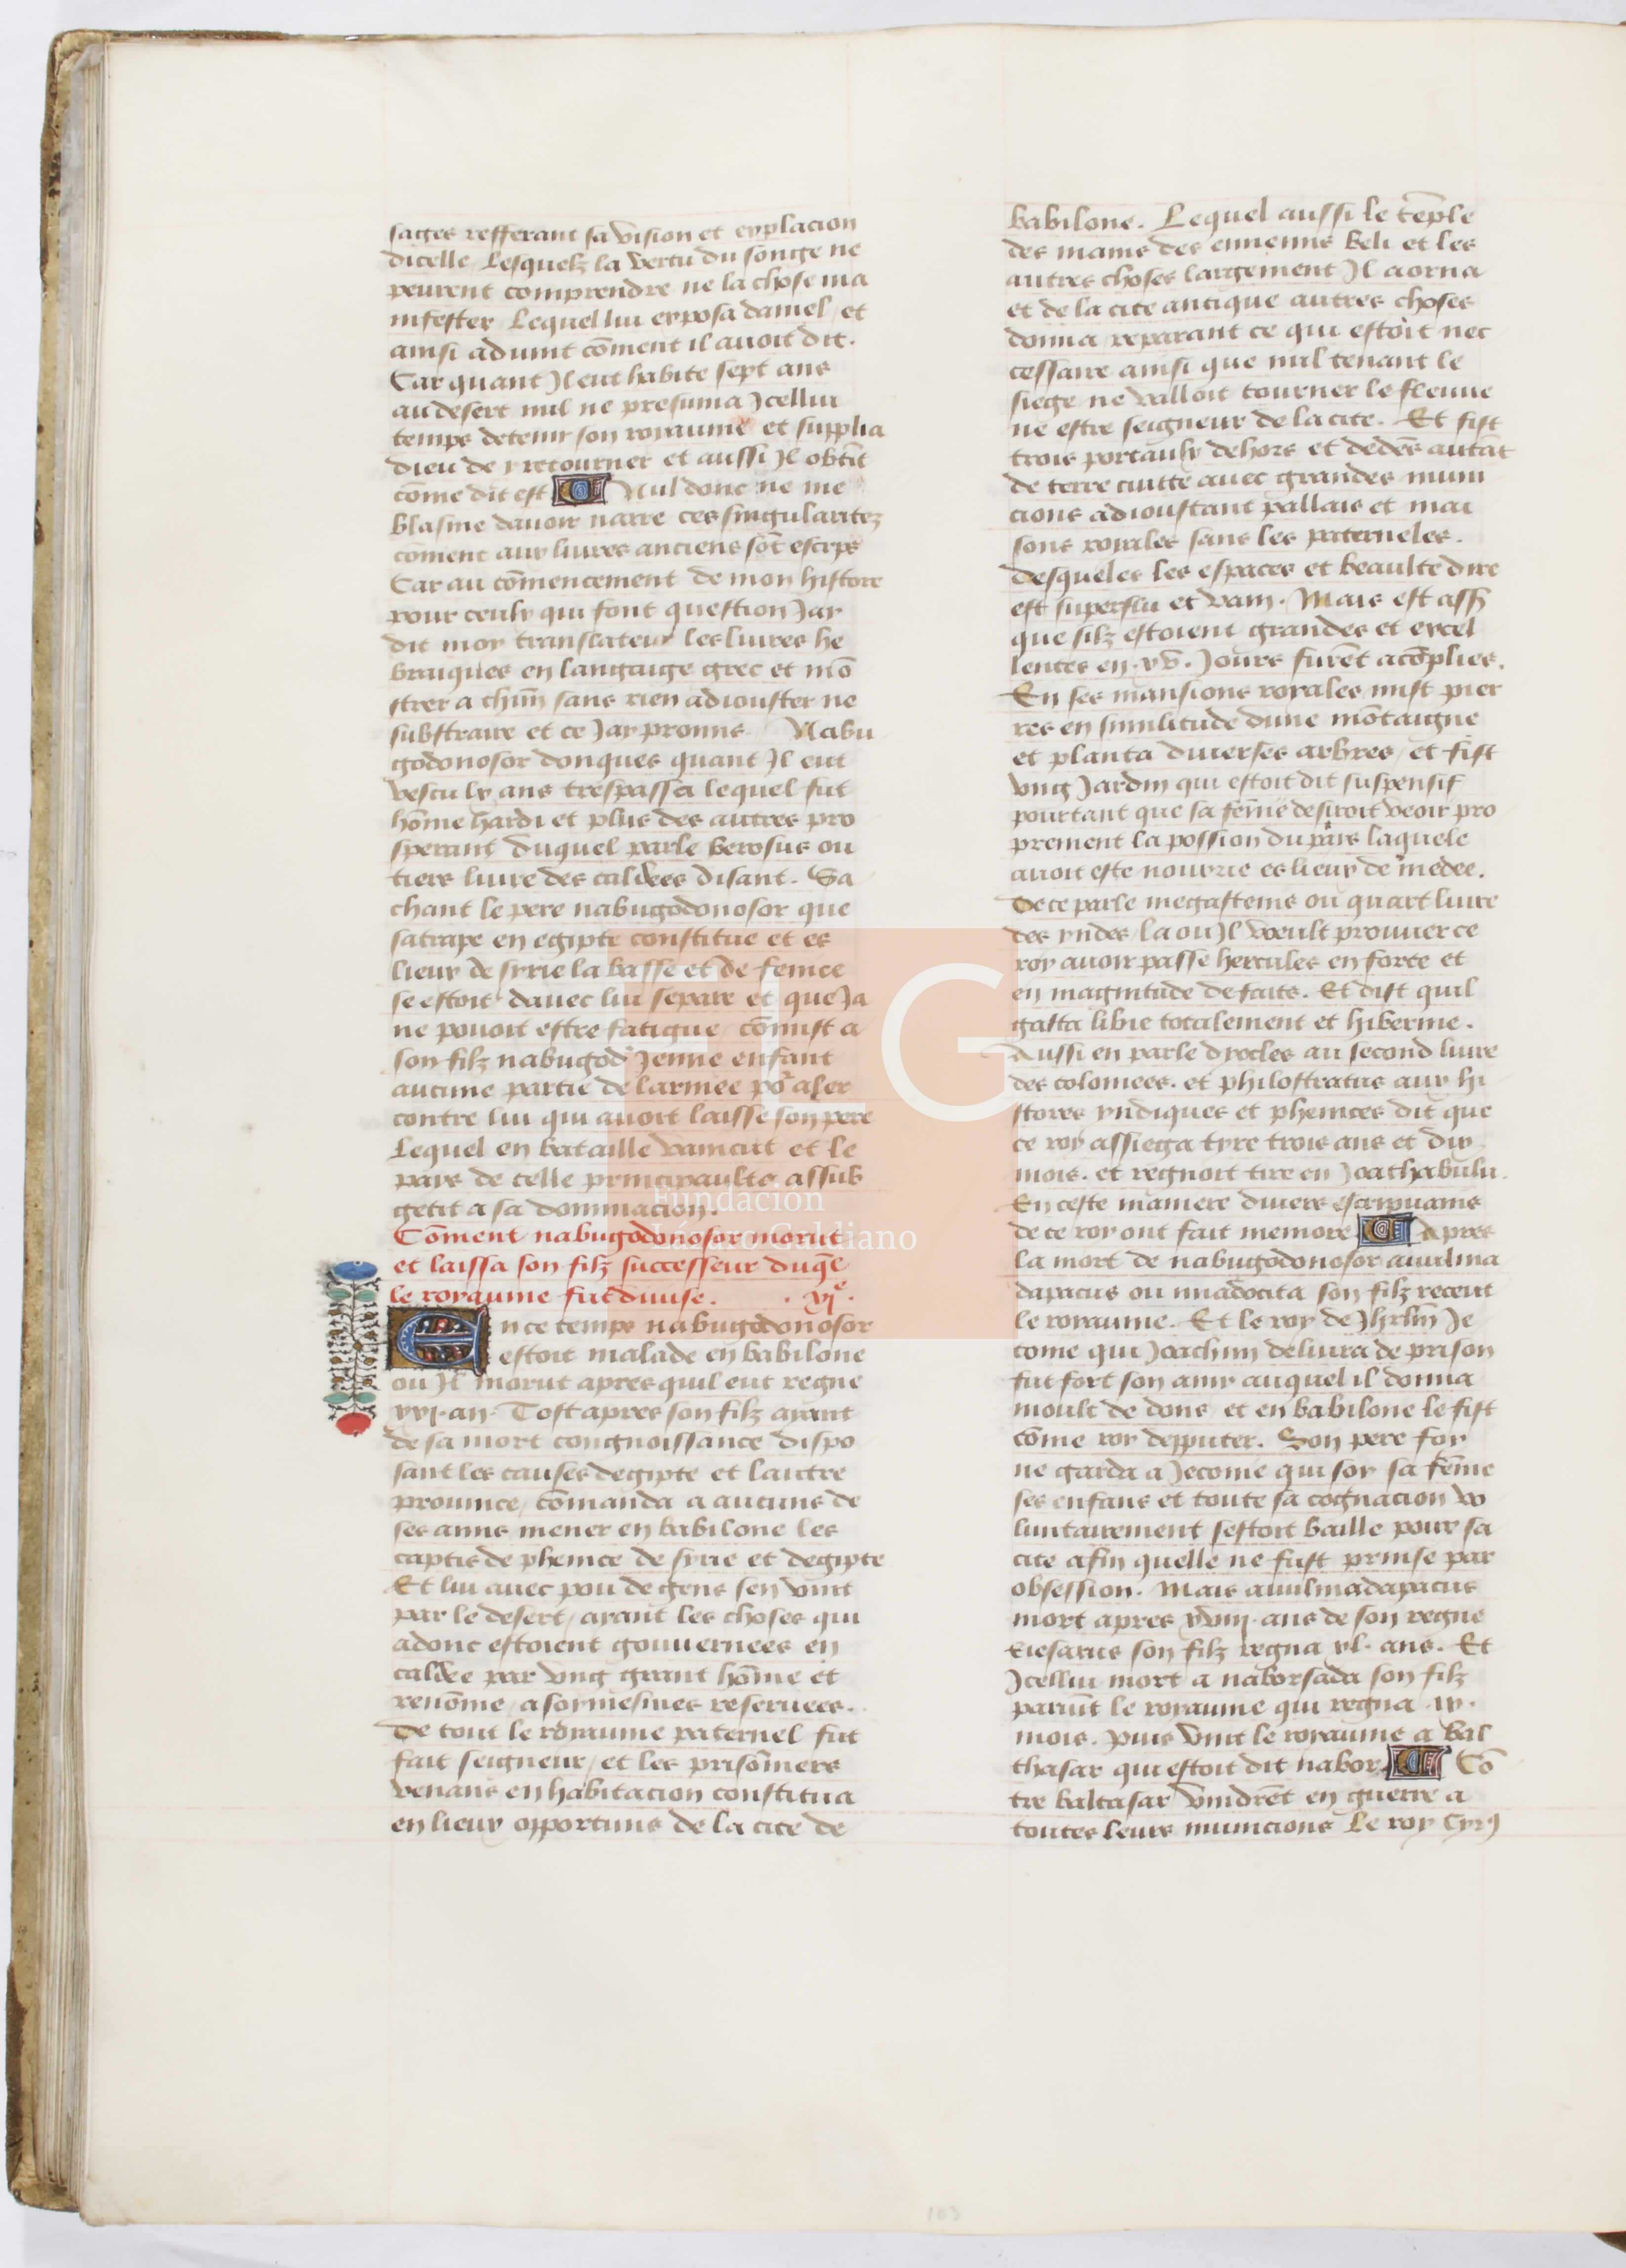 sages refferant sa vision et explacion
dicelle / Lesquelz la vertu du songe ne
peurent comprendre ne la chose ma
nifester Lequel lui exposa daniel / et
ainsi aduint cōment il auoit dit.
Car quant Il eut habite sept ans
au desert nul ne presuma Icellui
temps detenir son royaume et supplia
dieu de y retourner et aussi Il obtīt
cōme dit est Nul donc ne me
blasme dauoir narre ces singularitez
coment aux liures anciens sōt escrips
Car au cōmencement de mon histore
pour ceulx qui font question Iay
dit moy translateur les liures he
braiques en langaige grec et mō
strer a chūn sans rien adiouster ne
substraire et ce Iay promis. Nabu
godonosor donques quant Il eut
vescu lx ans trespassa lequel fut
hōme hardi et plus des autres pro
sperant duquel parle berosus ou
tiers liure des caldees disant. Sa
chant le pere nabugodonosor que
satrape en egipte constitue et es
lieux de syrie la basse et de fenice
se estoit dauec lui separe et que Ja
ne pouoit estre fatigue / cōmist a
son filz nabugod Ienne enfant
aucune partie de larmee po aler
contre lui qui auoit laisse son pere
Lequel en bataille vaincut et le
pays de celle principaulte assub
getit a sa dominacion.
Cōment nabugodonosor morut
et laissa son filz successeur duq̄l
le royaume fut diuise. . vjᵉ.
En ce temps nabugodonosor
estoit malade en babilone
ou Il morut apres quil eut regne
xxj. an. Tost apres son filz ayant
de sa mort congnoissance dispo
sant les causes degipte et lautre
prouince / cōmanda a aucuns de
ses amis mener en babilone les
captis de phenice de syrie et degipte
Et lui auec pou de gens sen vint
par le desert / ayant les choses qui
adonc estoient gouuernees en
caldee par vng grant hōme et
renōme / a soymesmes reseruees.
De tout le royaume paternel fut
fait seigneur / et les prisōniers
venans en habitacion constitua
en lieux opportuns de la cite de
babilone. Lequel aussi le tēple
des mains des ennemis beli et les
autres choses largement Il aorna
et de la cite antique autres choses
donna reparant ce qui estoit nec
cessaire ainsi que nul tenant le
siege ne valloit tourner le fleuue
ne estre seigneur de la cite. Et fist
trois portaulx dehors et dedēs autāt
de terre cuitte auec grandes muni
cions adioustant pallais et mai
sons royales sans les paterneles.
Desqueles les espaces et beaulte dire
est superflu et vain. Mais est ass
que silz estoient grandes et excel
lentes en .xv. Jours furēt acōplies.
En ses mansions royales mist pier
res en similitude dune mōtaigne
et planta diuerses arbres / et fist
vng Jardin qui estoit dit suspensif
pourtant que sa fēme desiroit veoir pro
prement la possion du pais laquele
auoit este nourrie es lieux de medee.
De ce parle megastenis ou quart liure
des yndes / la ou Il voeult prouuer ce
roy auoir passe hercules en force et
en magnitude de faits. Et dist quil
gasta libie totalement et hibernie.
Aussi en parle dyocles au second liure
des colonnees. et philostratus aux hi
stores yndiques et phenices dit que
ce roy assiega tyre trois ans et dix
mois. et regnoit tire en Joathabulu.
En ceste maniere diuers escripuains
de ce roy ont fait memore Apres
la mort de nabugodonosor auilma
dapacus ou nnadocita son filz receut
le royaume. Et le roy de Jhrlm̄ Je
come qui Joachim deliura de prison
fut fort son amy auquel il donna
moult de dons / et en babilone le fist
cōme roy depputer. Son pere foy
ne garda a Jeconie qui soy sa fēme
ses enfans et toute sa cognacion vo
luntairement sestoit baille pour sa
cite afin quelle ne fust prinse par
obsession. Mais auilmadapacus
mort apres xviij. ans de son regne
Eiesarus son filz regna xl. ans. Et
Icellui mort a naborsada son filz
paruīt le royaume qui regna .ix.
mois. puis vint le royaume a bal
thasar qui estoit dit nabor Cō
tre baltasar vindrēt en guerre a
toutes leurs municions Le roy Cyrꝰ